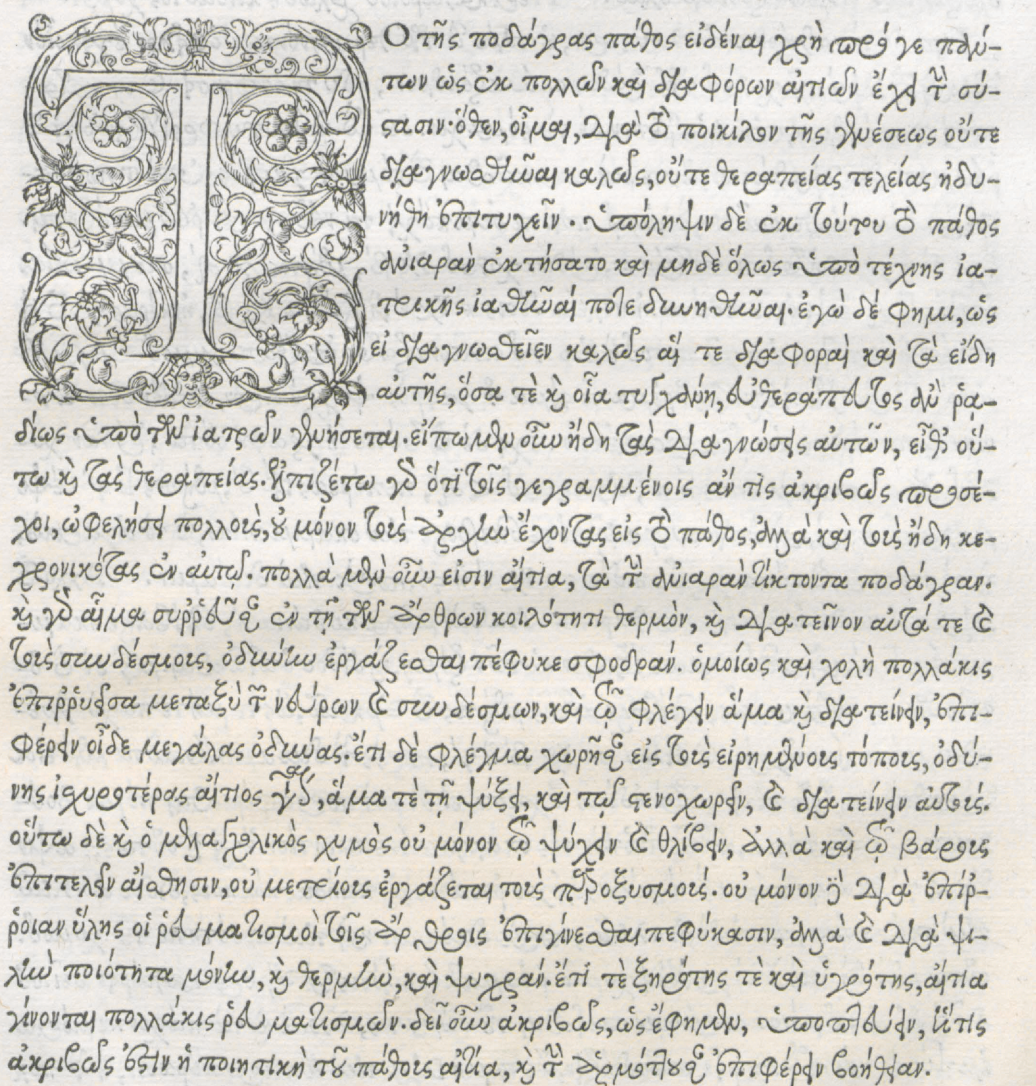 Τὸ τῆς ποδάγρας πάθος εἰδέναι χρὴ πρό γε πολύ-
των ὡς ἐκ πολλῶν καὶ διαφόρων αἰτιῶν ἔχει τὴν σύ-
στασιν· ὅθεν, οἶμαι, διὰ τὸ ποικίλον τῆς γενέσεως οὔτε
διαγνωσθῆναι καλῶς, οὔτε θεραπείας τελείας ἠδυ-
νήθη ἐπιτυχεῖν. ὑπόληψιν δὲ ἐκ τούτου τὸ πάθος
ἀνιαρὰν ἐκτήσατο καὶ μηδὲ ὅλως ὑπὸ τέχνης ἰα-
τρικῆς ἰαθῆναί ποτε δυνηθῆναι. ἐγὼ δέ φημι, ὡς
εἰ διαγνωσθεῖεν καλῶς αἵ τε διαφοραὶ καὶ τὰ εἴδη
αὐτῆς, ὅσα τὲ καὶ οἷα τυγχάνῃ, εὐθεράπευτος ἂν ῥα-
δίως ὑπὸ τῶν ἰατρῶν γενήσεται. εἴπωμεν οὖν ἤδη τὰς διαγνώσεις αὐτῶν, εἶθ' οὕ-
τω καὶ τὰς θεραπείας. ἐλπιζέτω γὰρ ὅτι τοῖς γεγραμμένοις ἄν τις ἀκριβῶς προσέ-
χοι, ὠφελήσει πολλοὺς, οὐ μόνον τοὺς ἀρχὴν ἔχοντας εἰς τὸ πάθος, ἀλλὰ καὶ τοὺς ἤδη κε-
χρονικότας ἐν αὐτῷ. πολλὰ μὲν οὖν εἰσιν αἴτια, τὰ τὴν ἀνιαρὰν τίκτοντα ποδάγραν.
καὶ γὰρ αἷμα συῤῥεῦσαν ἐν τῇ τῶν ἄρθρων κοιλότητι θερμὸν, καὶ διατεῖνον αὐτά τε καὶ
τοὺς συνδέσμους, ὀδύνην ἐργάζεσθαι πέφυκε σφοδράν. ὁμοίως καὶ χολὴ πολλάκις
ἐπιῤῥυεῖσα μεταξὺ τῶν νεύρων καὶ συνδέσμων, καὶ τῷ φλέγειν ἅμα καὶ διατείνειν, ἐπι-
φέρειν οἶδε μεγάλας ὀδύνας. ἔτι δὲ φλέγμα χωρῆσαν εἰς τοὺς εἰρημένους τόπους, ὀδύ-
νης ἰσχυροτέρας αἴτιος γίνεται, ἅμα τὲ τῇ ψύξει, καὶ τῷ στενοχωρεῖν, καὶ διατείνειν αὐτούς.
οὕτω δὲ καὶ ὁ μελαγχολικὸς χυμὸς οὐ μόνον τῷ ψύχειν καὶ θλίβειν, ἀλλὰ καὶ τῷ βάρους
ἐπιτελεῖν αἴσθησιν, οὐ μετρίους ἐργάζεται τοὺς παροξυσμούς. οὐ μόνον δὲ διὰ ἐπίῤ-
ῥοιαν ὕλης οἱ ῥευματισμοὶ τοῖς ἄρθροις ἐπιγίνεσθαι πεφύκασιν, ἀλλὰ καὶ διὰ ψι-
λὴν ποιότητα μόνην, καὶ θερμὴν, καὶ ψυχράν. ἔτι τὲ ξηρότης τὲ καὶ ὑγρότης, αἴτια
γίνονται πολλάκις ῥευματισμῶν. δεῖ οὖν ἀκριβῶς, ὡς ἔφημεν, ὑποπτεύειν, ἥτις
ἀκριβῶς ἐστὶν ἡ ποιητικὴ τοῦ πάθους αἰτία, καὶ τὴν ἁρμόττουσαν ἐπιφέρειν βοήθειαν.